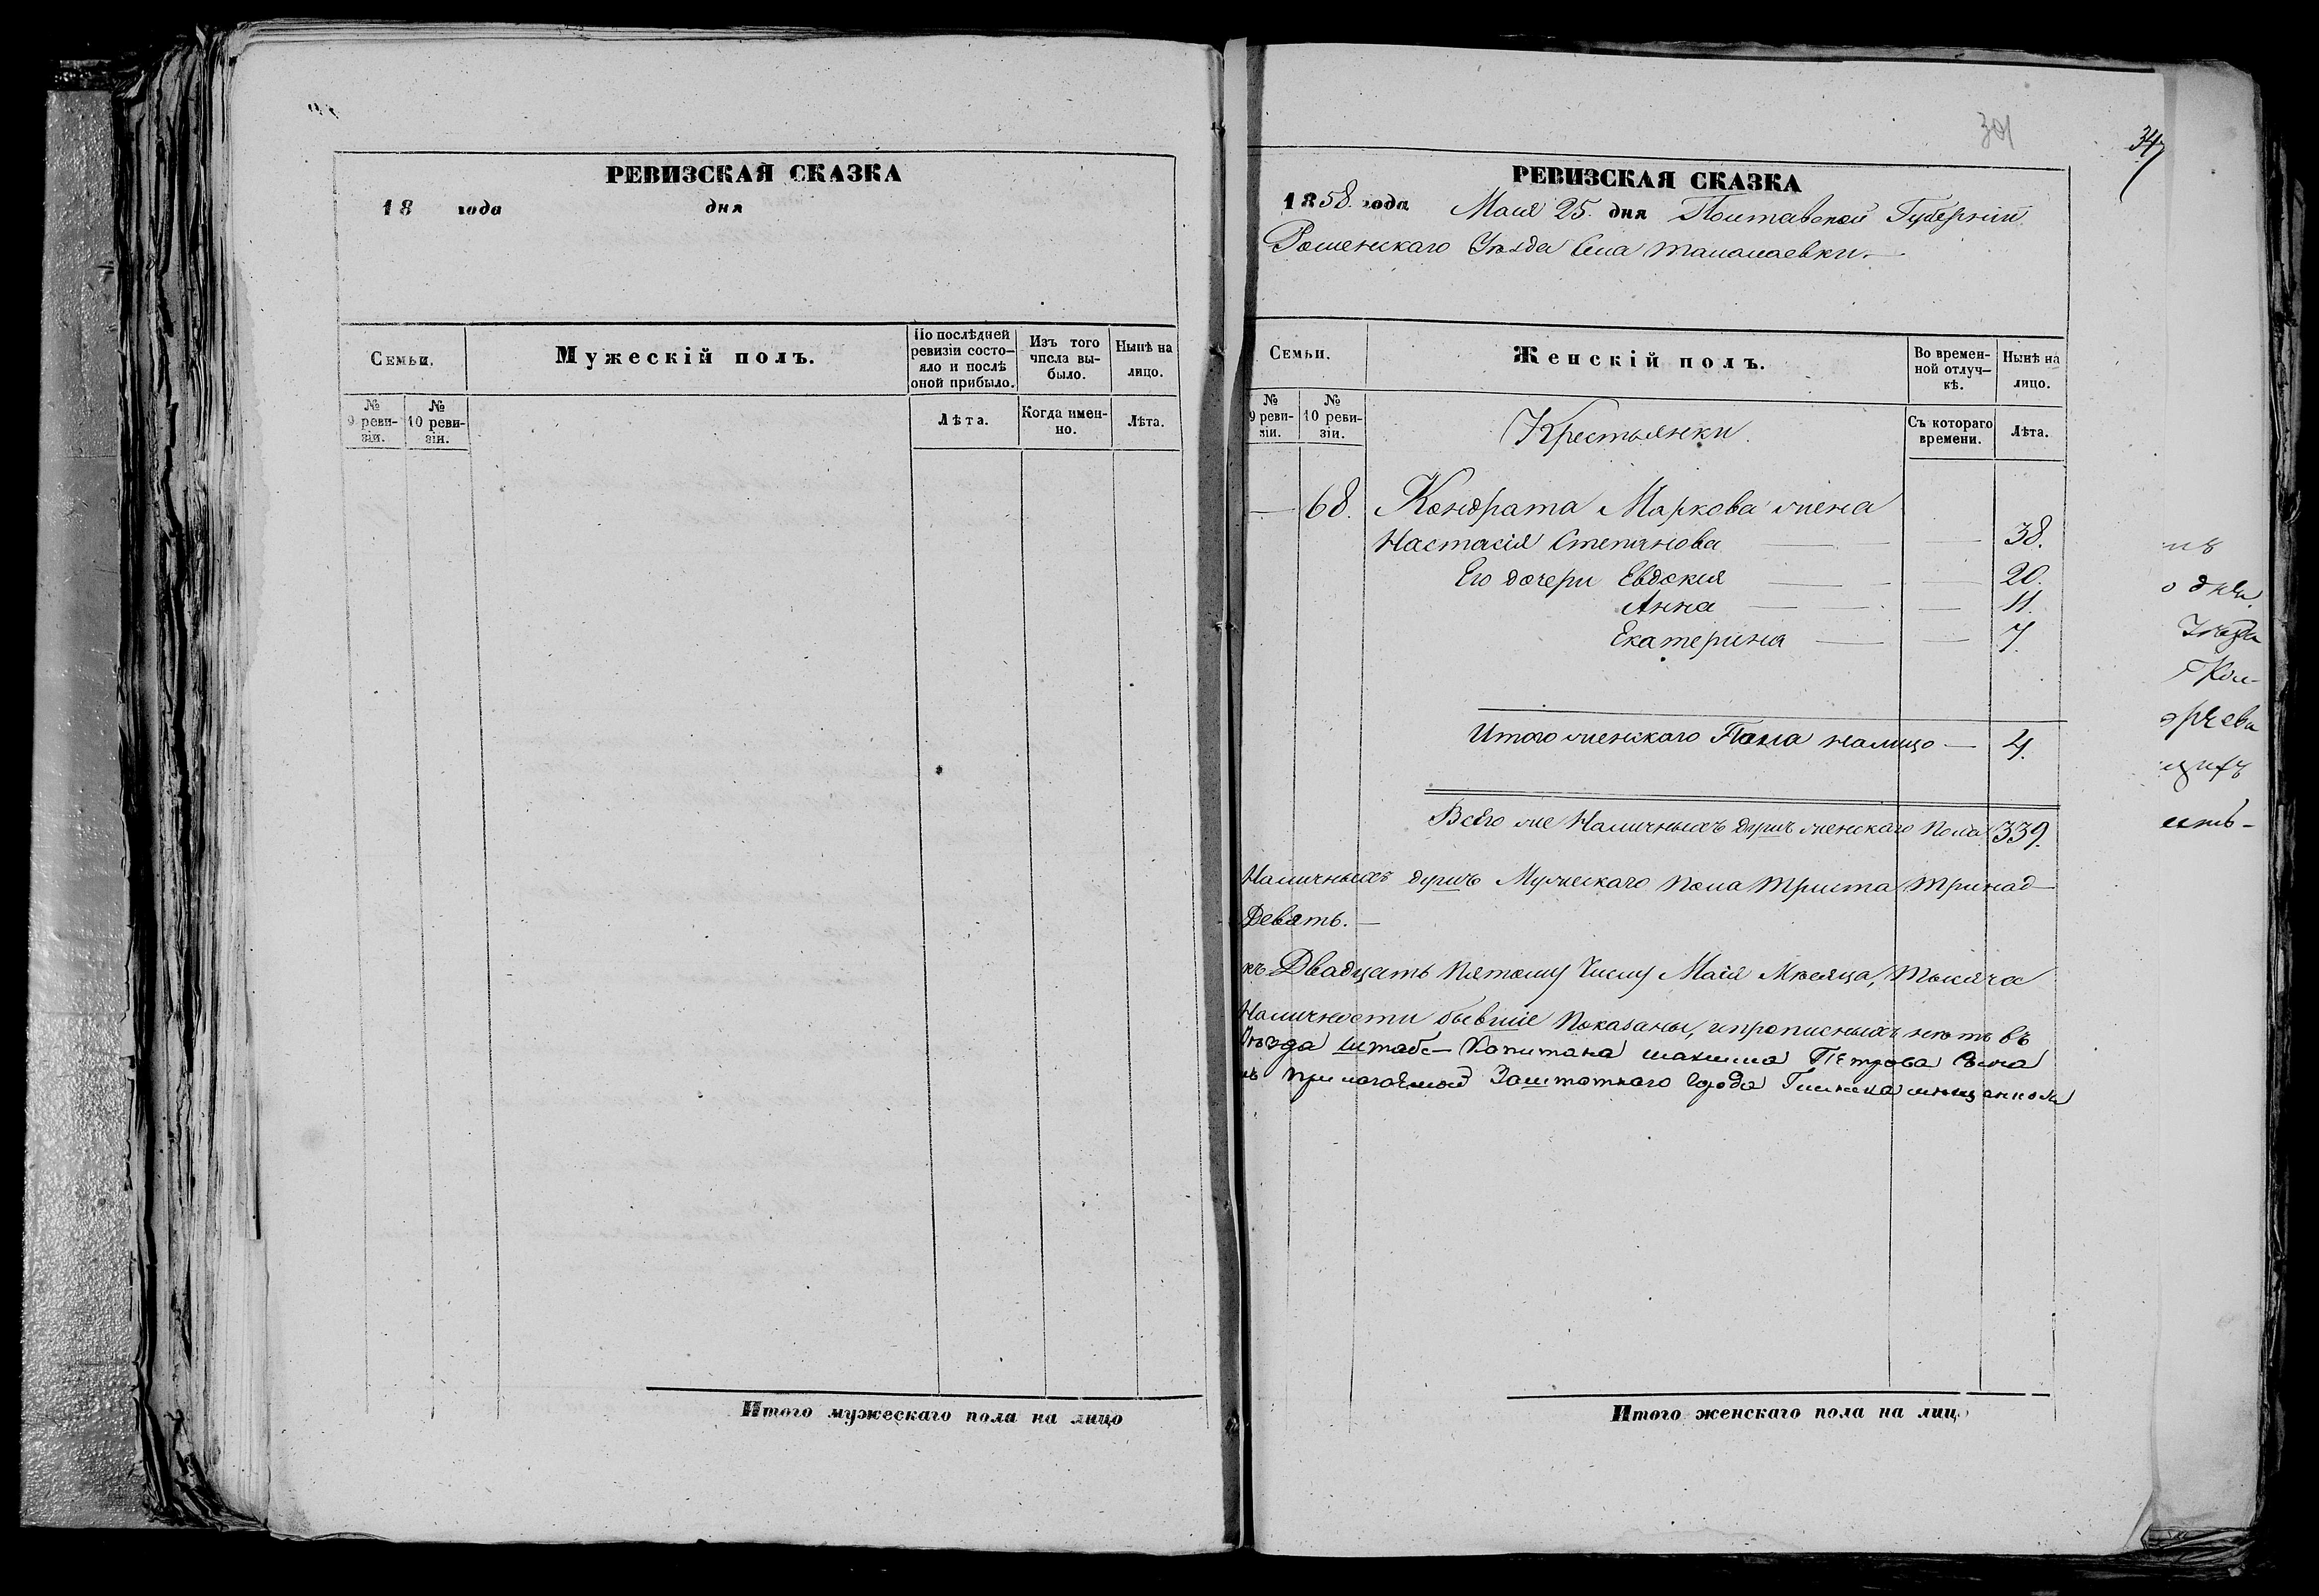 РЕВИЗСКАЯ СКАЗКА
18 года дня
Семьи.
Мужескій полъ.
По послѣдней ревизіи состо-
яло и послѣ оной прибыло.
Изъ того числа вы-
было.
Нынѣ на лицо.
№ 9 реви-
зіи.
№ 10 реви-
зіи.
Лѣта.
Когда имен-
но.
Лѣта.
Итого мужескаго пола на лицо
301
347
РЕВИЗСКАЯ СКАЗКА
1858 года Маія 25. дня Полтавской Губерніи
Роменскаго Уѣзда Села Талалаевки.
Семьи.
Женскій полъ.
Во времен-
ной отлуч-
кѣ.
Нынѣ на лицо.
№ 9 реви-
зіи.
№ 10 реви-
зіи.
Крестьянки.
Съ котораго времени.
Лѣта.
— 68. Кондрата Маркова жена
Настасія Степанова — — 38.
Его дочери Евдокия — — 20.
Анна — — 11.
Екатерина — — 7.
Итого женскаго Пола налицо — 4.
Всего же Наличныхъ душъ женскаго пола 339.
Наличныхъ душъ Мужескаго пола триста тринад-
Девять. —
къ Двадцать пятому Числу Маія Мѣсяца, тысяча
Наличности бывшіе показаны, и прописныхъ нѣтъ въ
Уѣзда Штабс-Капитана Петрова Сына
Заштатнаго города
о дня.
Уѣзда
Итого женскаго пола на лиц